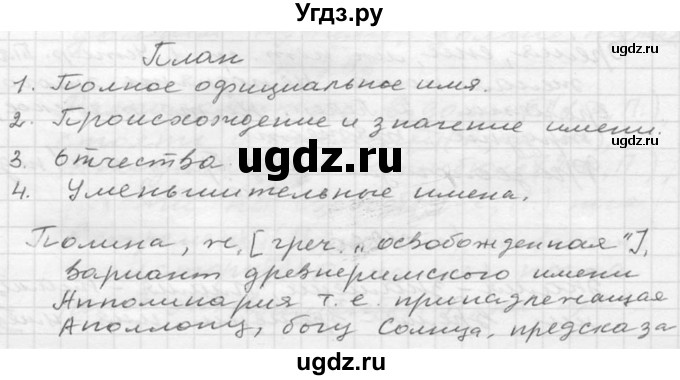 Угдз.ру
План
ugdz.ru
1. Полное официальное имя.
ugdz.ru
2. Происхождение и значение имени.
3. Отчества
ugdz.ru
4. Уменьшительные имена.
Полина, ж, [греч. „освобожденная"],
ugdz.ru
вариант древнеримского имени
Апполинария т.е. принадлежащая
Аполлону, богу Солнца, предсказа
ugdz.ru
ugdz.ru